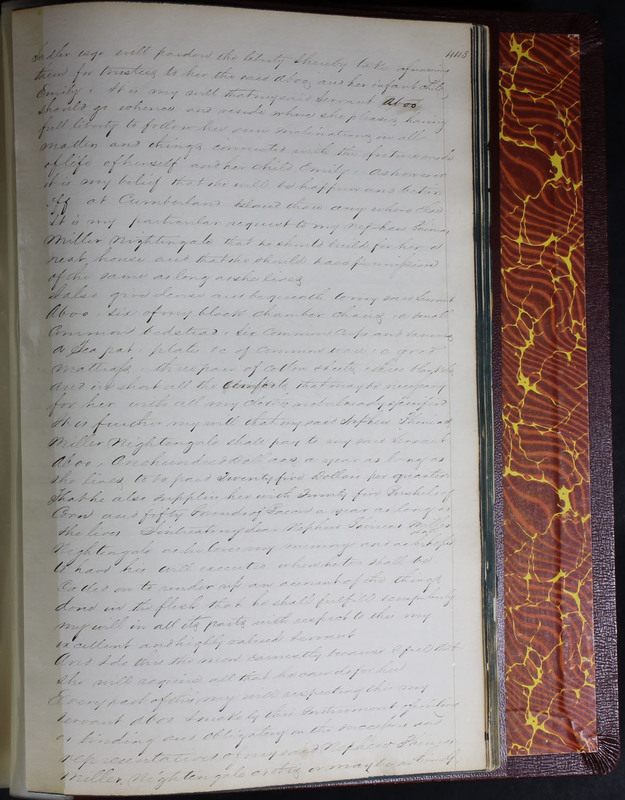 445
Sadler esqr will pardon the liberty I hereby take of naming
them for trustees to her the said Aboo and her infant child
Emily. It is my will that my said Servant Aboo
should go whence and reside where she pleases having
full liberty to follow her own inclinations in all
matters and things connected with the future mode
of life of herself and her child Emily. As however
it is my belief that she will be happier and better
off at Cumberland Island than any where else
It is my particular request to my nephew
Miller Nightingale that he should build for her a
neat house and that he should have
of the same as long as she lives
I also give devise and bequeath to my said Servant
Aboo. Six of my black chamber chairs a small
Common bedstead. Six Common Cups and saucers
a Tea pot. plates &c of Common ware. a good
mattrass. three pair of Cotton sheets
and in short all the Comforts that may be necessary
for her with all my not already specified
It is further my will that my said Nephew Thomas
Miller Nightingale shall pay to my said Servant
Aboo. One hundred dollars a year as long as
she lives to be paid Twenty five Dollars per quarter
That he also supplies her with Twenty five Bushels of
Corn and fifty Pounds of Bacon a year as long as
she lives I intreat my dear Nephew
Nightingale as he loves my memory and as he hopes
to have his will executed when he too shall be
Called on to render up an account of the things
done in the flesh that he shall fulfill scrupulously
my will in all its parts with respect to this my
excellent and highly valued Servant
And I do this the more earnestly because I feel that
she will require all that he can do for her
Every part of this my will respecting this my
Servant Aboo I make by this Instrument of writing
as binding and obligatory on the successors and
representatives of my said Nephew Thomas
Miller Nightingale as it is or may be on himself